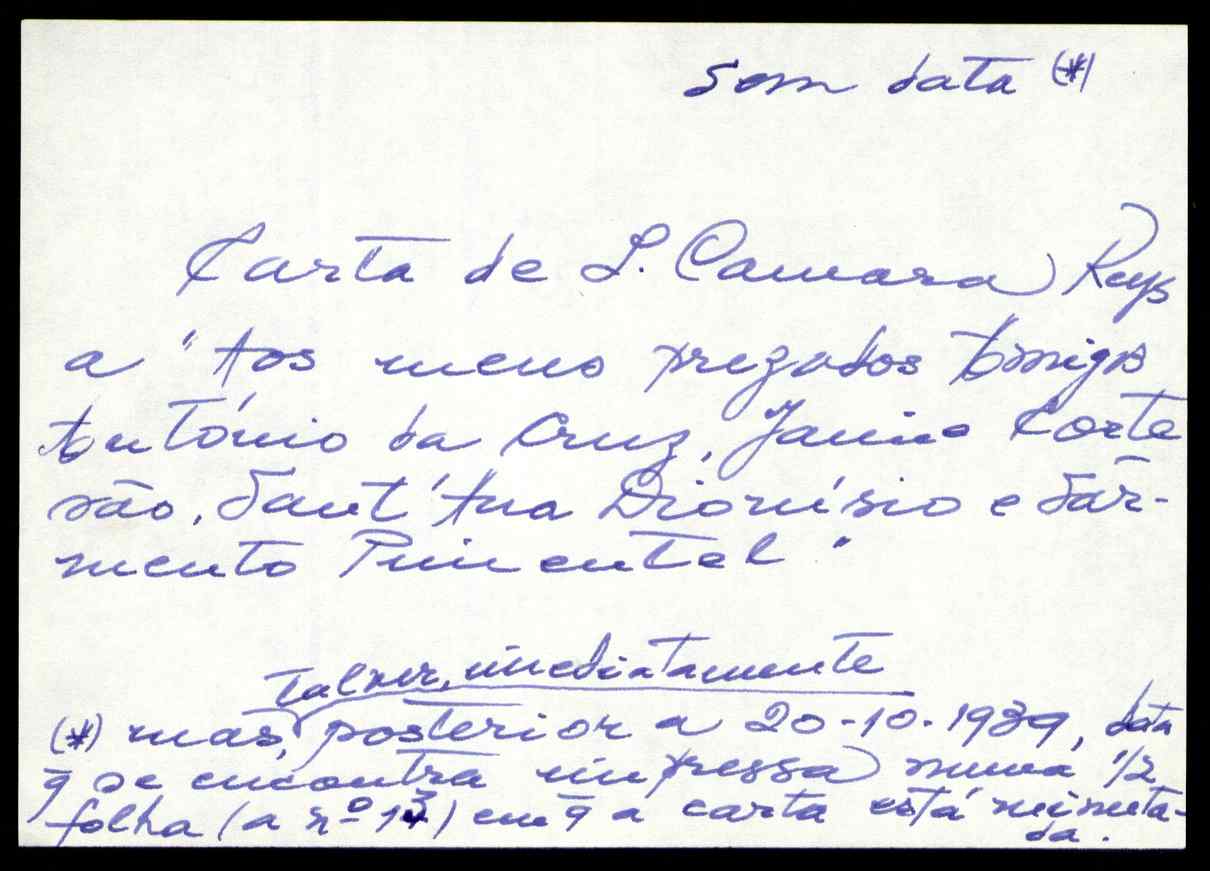 sem data (*)
Carta de L. Camara Reys
a "Aos meus prezados Amigos
António da Cruz, Jaime Corte
são, Sant'Ana Dionísio e Sar-
mento Pimentel"
Talvez, imediatamente
(*) mas, posterior a 20-10-1939, data
q̄ se encontra impressa numa 1/2
folha (a nº 13) em q̄ a carta está minuta-
da.